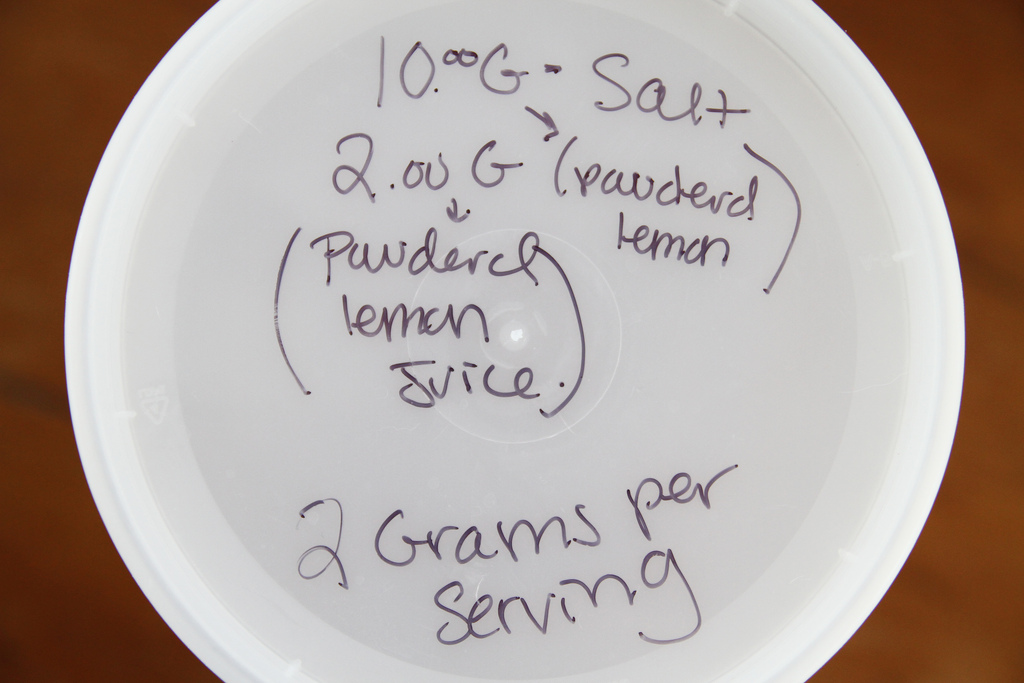 10.00 G - Salt
2.00 G (pawderd
lemon)
(Pawderd
lemon
Juice.)
2 Grams per
serving